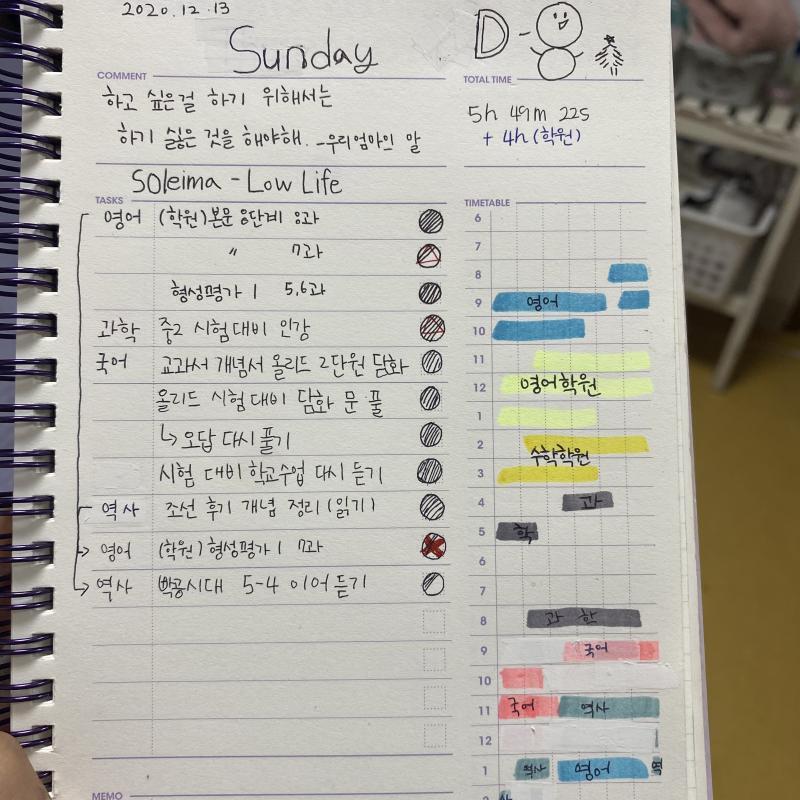 2020.12.13
Sunday
D-
COMMENT
하고 싶은걸 하기 위해서는
하기 싫은 것을 해야해. -우리엄마의 말
TOTAL TIME
5h 49m 22s
+ 4h (학원)
Soleima - Low Life
TASKS
영어 (학원)본문 8단계 8과
〃 7과
형성평가 1 5,6과
과학 중2 시험대비 인강
국어 교과서 개념서 올리드 2단원 담화
올리드 시험대비 담화 문 풀
↳ 오답 다시 풀기
시험 대비 학교수업 다시 듣기
역사 조선 후기 개념 정리 (읽기)
영어 (학원) 형성평가 1 7과
역사 빡공시대 5-4 이어 듣기
TIMETABLE
6
7
8
9 영어
10
11
12 영어학원
1
2
수학학원
3
4 과
5 학
6
7
8 과학
9 국어
10
11 국어 역사
12
1 역사 영어
MEMO